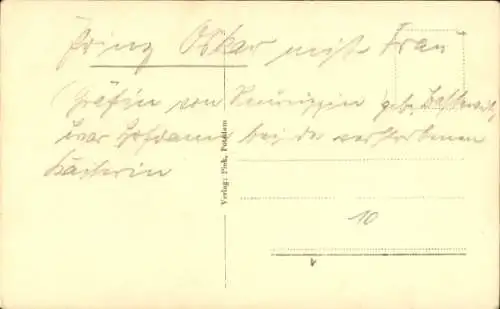 Prinz Oskar mit Frau
(Gräfin von Ruppin) geb.
war Hofdame bei der verstorbenen
Kaiserin
Verlag: Fink, Potsdam
10